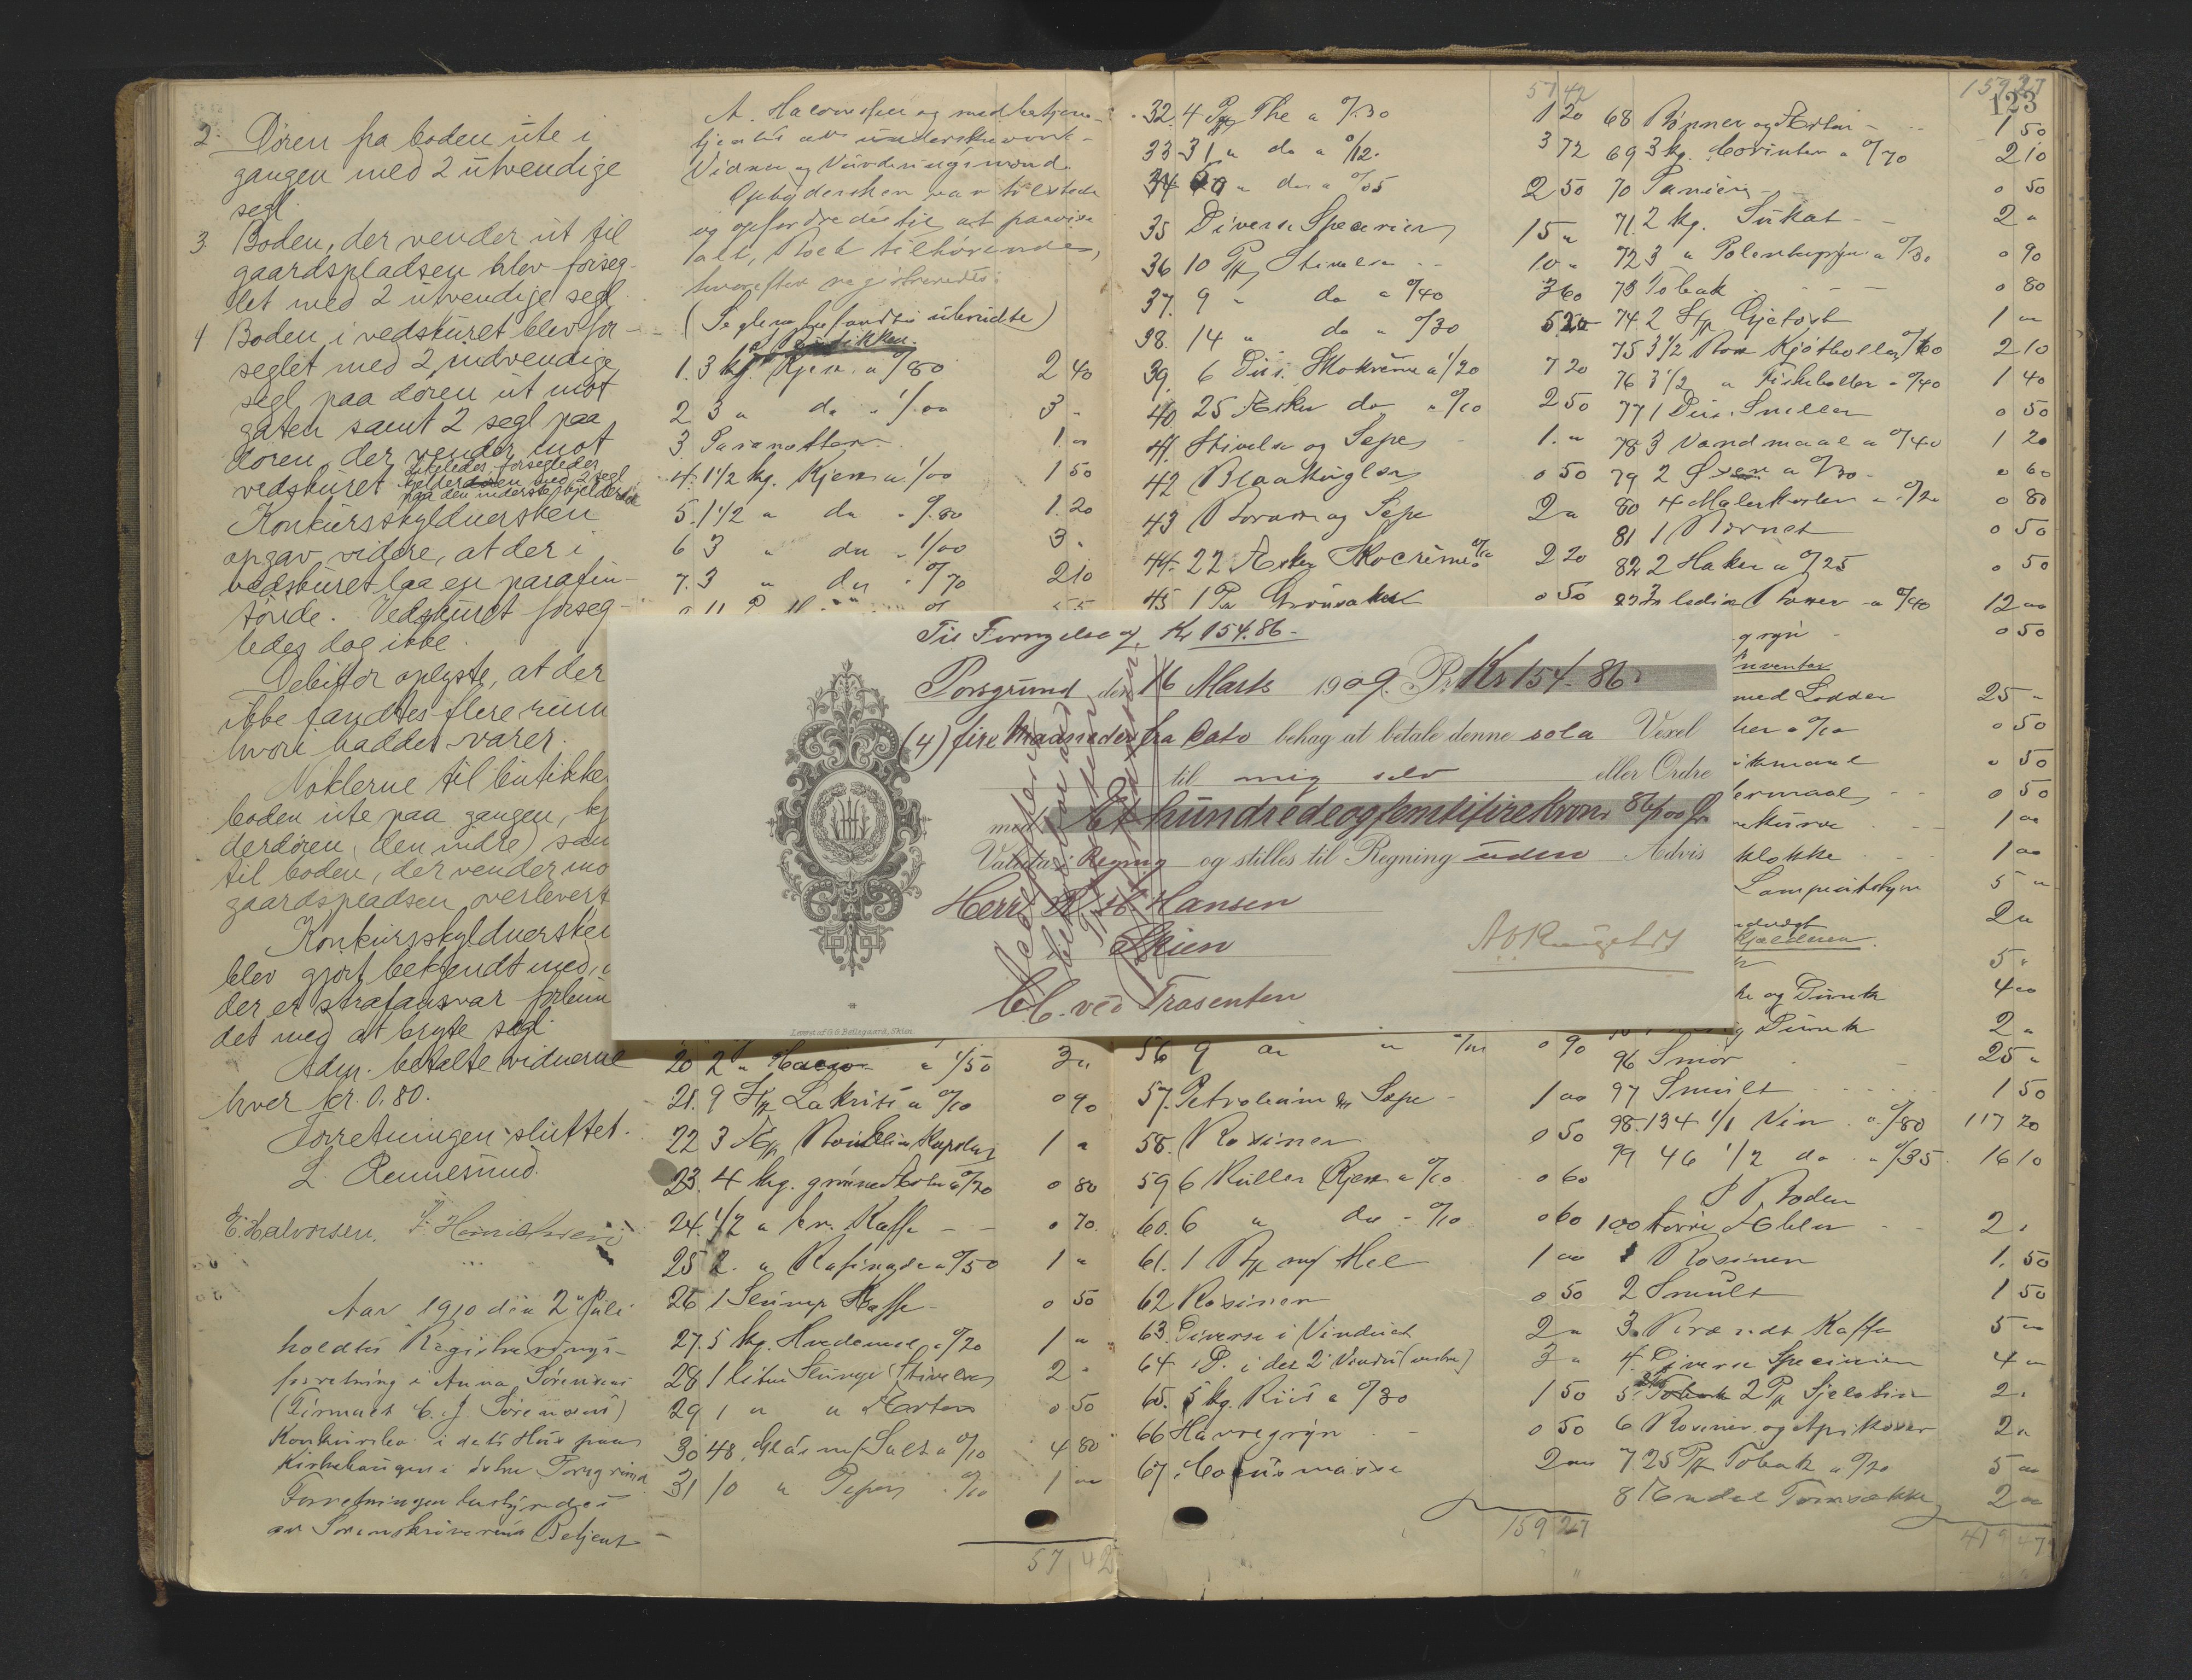 2. Døren fra boden ute i
gangen med 2 utvendige
segl.
3. Boden, der vender ut til
gaardspladsen blev forseg-
let med 2 utvendige segl
4 Boden i vedskuret blev for-
seglet med 2 indvendige
segl paa døren ut mot
gaten samt 2 segl paa
døren, der vender mot
vedskuret
Konkursskyldnersken
opgav videre, at der i
vedskuret laa en parafin-
tønde. Vedskuret forseg-
ledes dog ikke.
Debitor oplyste, at der
ikke fandtes flere rum
hvori hadde varer.
Nøklerne til butikke
boden ute paa gangen, kj
derdøren (den indre) sam
til boden, der vender mo
gaardspladsen overlevert
Konkursskyldnersken
blev gjort bekjendt med, a
der er strafansvar forbun
det med at bryte segl.
Adm. betalte vidnerne
hver kr. 0.80.
Forretningen sluttet.
L. Rennesund.
E. Halvorsen.
Aar 1910 den 2 Juli
holdtes Registrerings-
forretning i Anna Sørensens
(Firmaet C. J. Sørensens)
Konkursbo i dets Hus paa
Kirkehaugen i østre Porsgrund
Forretningen bestyredes
av Sorenskriverens Betjent
A. Halvorsen og medbetjen-
tjentes av underskrevne
Vidner og Vurderingsmænd.
Opbydersken var tilstede
og opfordredes til at paavise
alt, Boet tilhørende,
hvorefter registreredes:
(Seglene befandtes ubrudte)
1. 3 kg. Kjex a 0/80 2 40
2 3 " do " 1/00 3 "
3 Paranøtter 1 "
4. 1 1/2 kg. Kjex a 1/00 1 50
5. 1 1/2 " do " 0/80 1.20
6 3 " do " 1/00 3 "
7. 3 " do " 0/70 2 10
20 2 " " 1/50 3 "
21. 9 Stk Lakrits a 0/10 0 90
22 3 1 "
23. 4 kg. grønne Erter a 0/20 0 80
24. 1/2 " br. Kaffe 0 70
25 2 " Rafinade a 0/50 1 "
26 1 Slump Kaffe 0 50
27. 5 kg. Hvedemel a 0/20 1 "
28 1 liten Slump Stivelse 2 "
29 1 " " Erter 0 50
30 48 Glas m/ Salt a 0/10 4 80
31 10 " Peper " 0/10 1 "
57 42
57 42
32. 4 Pk The a 0/30 1 20
33 31 " do a 0/12 3 72
34 " do a 0/05 2 50
35 Diverse Specerier 15 "
36 10 Pk Stivelse 10 "
37. 9 " do a 0/40 3 60
38. 14 " do " 0/30
39. 6 Dus. Skokreme a 1/20 7 20
40 25 Æsker do a 0/10 2 50
41. Stivelse og Sepe 1. "
42 Blaakugler 0 50
43 Borax og Sepe 2 "
44. 22 Æsker Skocreme 2 20
45 1 Pk 0 50
56 9 0 90
57. Petroleum Sæpe 1 00
58. Rosiner 0 50
59 6 Ruller Kjex a 0/10 0 60
60. 6 " do " 0/10 0 60
61. 1 Pk m/ Mel 1 00
62 Rosiner 0 50
63. Diverse i Vinduet 2 "
64 D. i det 2. Vindu (venstre) 3 "
65. 5 kg. Riis a 0/30 1 50
66 Havregryn 0 50
67. Cocusmasse 2 00
159 27
159 27
123
68 Bønner og Erter 1 50
69 3 kg. Corinter a 0/70 2 10
70 0 50
71. 2 kg. Sukat 2 "
72 3 " a 0/30 0 90
73 Tobak 0 80
74. 2 Stk Gjetost 1 "
75 3 1/2 Box Kjøtboller a 0/60 2 10
76 3 1/2 " Fiskeboller a 0/40 1 40
77 1 Dus. Sneller 0 50
78 3 Vandmaal a 0/40 1 20
79 2 Øxer a 0/30 0 60
80 4 Malerkoster a 0/20 0 80
81 1 0 50
82 2 Haker a 0/25 0 50
a 0/40 12 00
gryn 0 50
Inventar
med Lodder 25 "
a 0/10 0 50
0 50
0 50
1 00
klokke 1 00
5 "
2 "
Kjælderen
5 "
og Dunk 4 00
g Dunk 2 "
96 Smør 25 "
97 Smult 1 50
98. 134 1/1 Vin a 0/80 117 20
99 46 1/2 do a 0/35 16 10
I Boden
100 tørre Æbler 2 "
1 Rosiner 1. 50
2 Smult 1 50
3. Brændt Kaffe 5 "
4. Diverse Specerier 4 "
5. 2 Pk Gjelatin 2 "
6 Rosiner og Aprikoser 2 "
7. 25 Pk Tobak a 0/20 5 00
8 Endel Tomsække 2 00
419 47
Til Fornyelse af Kr 154.86.-
Porsgrund den 16 Marts 1909. Pr. Kr 154.86
(4) fire Maaneder fra Dato behag at betale denne sola Vexel
til mig selv eller Ordre
med Et hundrede og femtifire kroner 86/100 Ør
Valuta i Regning og stilles til Regning uden Advis
Herr Hansen
Skien
bb. ved Trasenten
Leveret af G. G. Bøllegaard, Skien